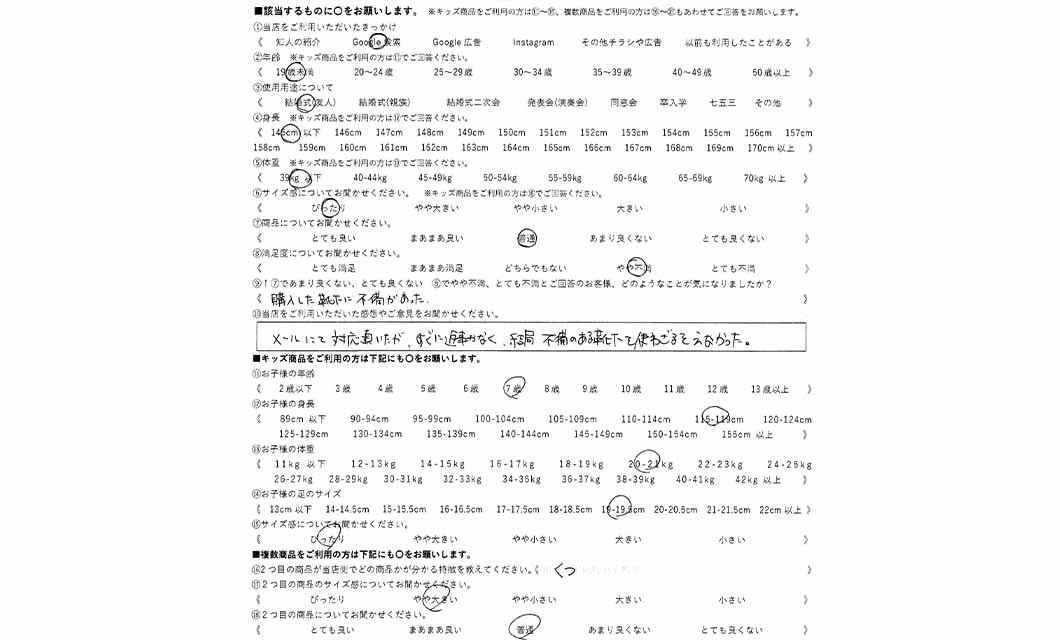 ■該当するものに〇をお願いします。 ※キッズ商品をご利用の方は⑪〜⑮、複数商品をご利用の方は⑯〜⑳もあわせてご回答をお願いします。
①当店をご利用いただいたきっかけ
《 知人の紹介 Google 検索 Google 広告 Instagram その他チラシや広告 以前も利用したことがある 》
②年齢 ※キッズ商品をご利用の方は⑪でご回答ください。
《 19歳未満 20〜24歳 25〜29歳 30〜34歳 35〜39歳 40〜49歳 50歳以上 》
③使用用途について
《 結婚式(友人) 結婚式(親族) 結婚式二次会 発表会(演奏会) 同窓会 卒入学 七五三 その他 》
④身長 ※キッズ商品をご利用の方は⑫でご回答ください。
《 145cm 以下 146cm 147cm 148cm 149cm 150cm 151cm 152cm 153cm 154cm 155cm 156cm 157cm
158cm 159cm 160cm 161cm 162cm 163cm 164cm 165cm 166cm 167cm 168cm 169cm 170cm 以上 》
⑤体重 ※キッズ商品をご利用の方は⑬でご回答ください。
《 39kg 以下 40-44kg 45-49kg 50-54kg 55-59kg 60-64kg 65-69kg 70kg 以上 》
⑥サイズ感についてお聞かせください。 ※キッズ商品をご利用の方は⑮でご回答ください。
《 ぴったり やや大きい やや小さい 大きい 小さい 》
⑦商品についてお聞かせください。
《 とても良い まあまあ良い 普通 あまり良くない とても良くない 》
⑧満足度についてお聞かせください。
《 とても満足 まあまあ満足 どちらでもない やや不満 とても不満 》
⑨↑⑦であまり良くない、とても良くない ⑧でやや不満、とても不満とご回答のお客様、どのようなことが気になりましたか？
《 購入した靴下に不備があった. 》
⑩当店をご利用いただいた感想やご意見をお聞かせください。
メールにて対応頂いたが、すぐに返事がなく、結局 不備のある靴下を使わざるをえなかった。
■キッズ商品をご利用の方は下記にも〇をお願いします。
⑪お子様の年齢
《 2歳以下 3歳 4歳 5歳 6歳 7歳 8歳 9歳 10歳 11歳 12歳 13歳以上 》
⑫お子様の身長
《 89cm 以下 90-94cm 95-99cm 100-104cm 105-109cm 110-114cm 115-119cm 120-124cm
125-129cm 130-134cm 135-139cm 140-144cm 145-149cm 150-154cm 155cm 以上 》
⑬お子様の体重
《 11kg 以下 12-13kg 14-15kg 16-17kg 18-19kg 20-21kg 22-23kg 24-25kg
26-27kg 28-29kg 30-31kg 32-33kg 34-35kg 36-37kg 38-39kg 40-41kg 42kg 以上 》
⑭お子様の足のサイズ
《 13cm 以下 14-14.5cm 15-15.5cm 16-16.5cm 17-17.5cm 18-18.5cm 19-19.5cm 20-20.5cm 21-21.5cm 22cm 以上 》
⑮サイズ感についてお聞かせください。
《 ぴったり やや大きい やや小さい 大きい 小さい 》
■複数商品をご利用の方は下記にも〇をお願いします。
⑯2つ目の商品が当店側でどの商品かが分かる特徴を教えてください。《 くつ 》
⑰2つ目の商品のサイズ感についてお聞かせください。
《 ぴったり やや大きい やや小さい 大きい 小さい 》
⑱2つ目の商品についてお聞かせください。
《 とても良い まあまあ良い 普通 あまり良くない とても良くない 》